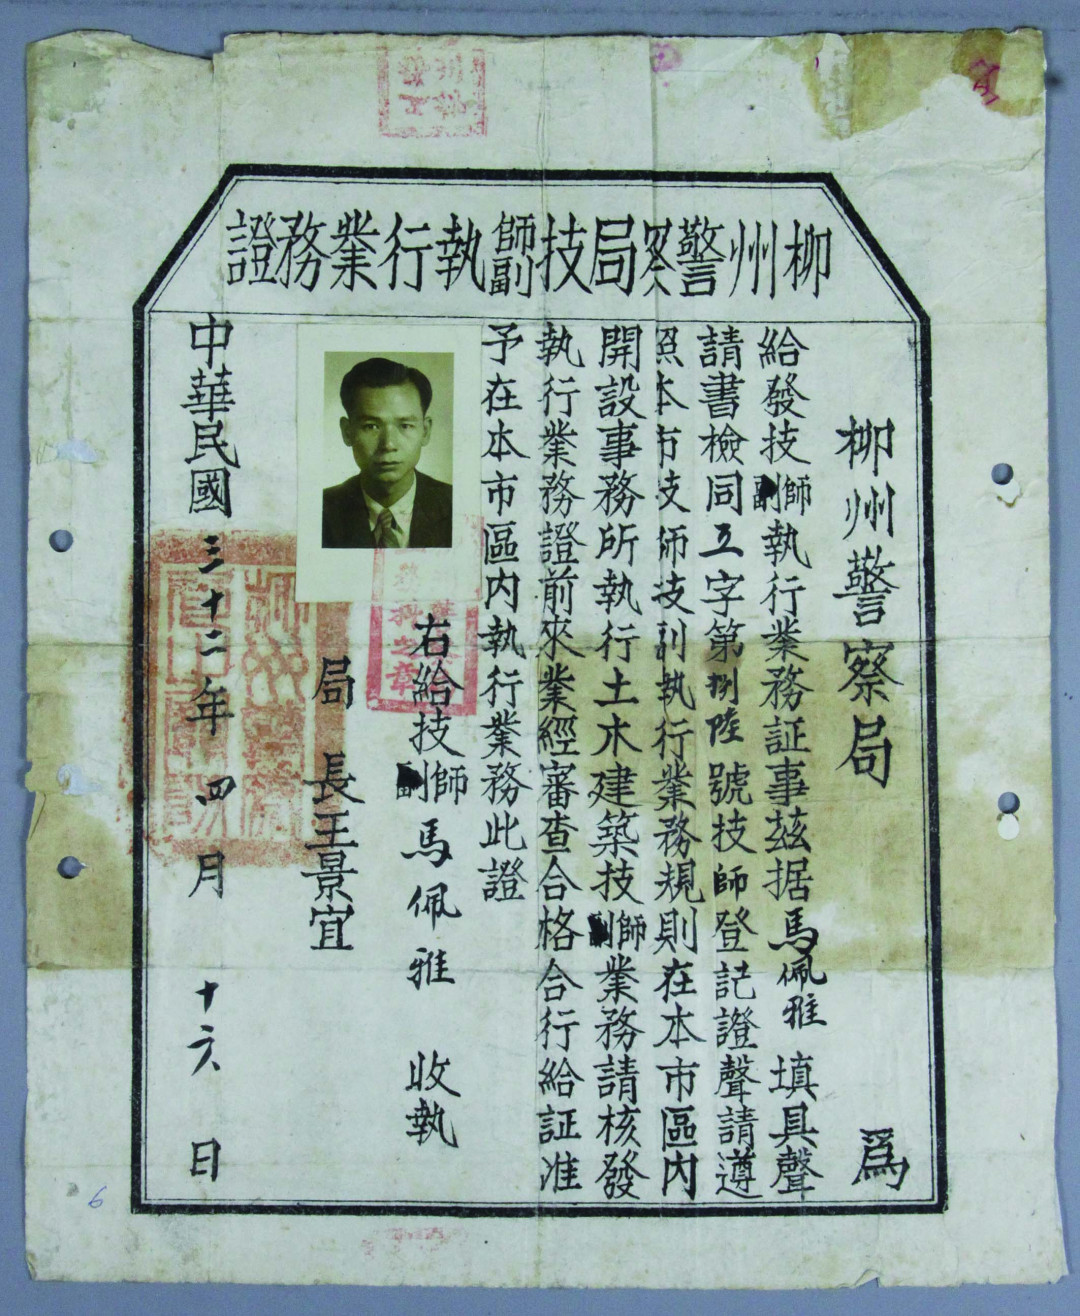 柳州警察局技師副執行業務證
柳州警察局 爲
給發技師副執行業務証事茲据馬佩雅填具聲
請書檢同工字第捌陸號技師登記證聲請遵
照本市技師技副執行業務規則在本市區內
開設事務所執行土木建築技師副業務請核發
執行業務證前來業經審查合格合行給証准
予在本市區內執行業務此證
右給技師副馬佩雅 收執
局 長王景宜
中華民國三十二年四月十六日
6